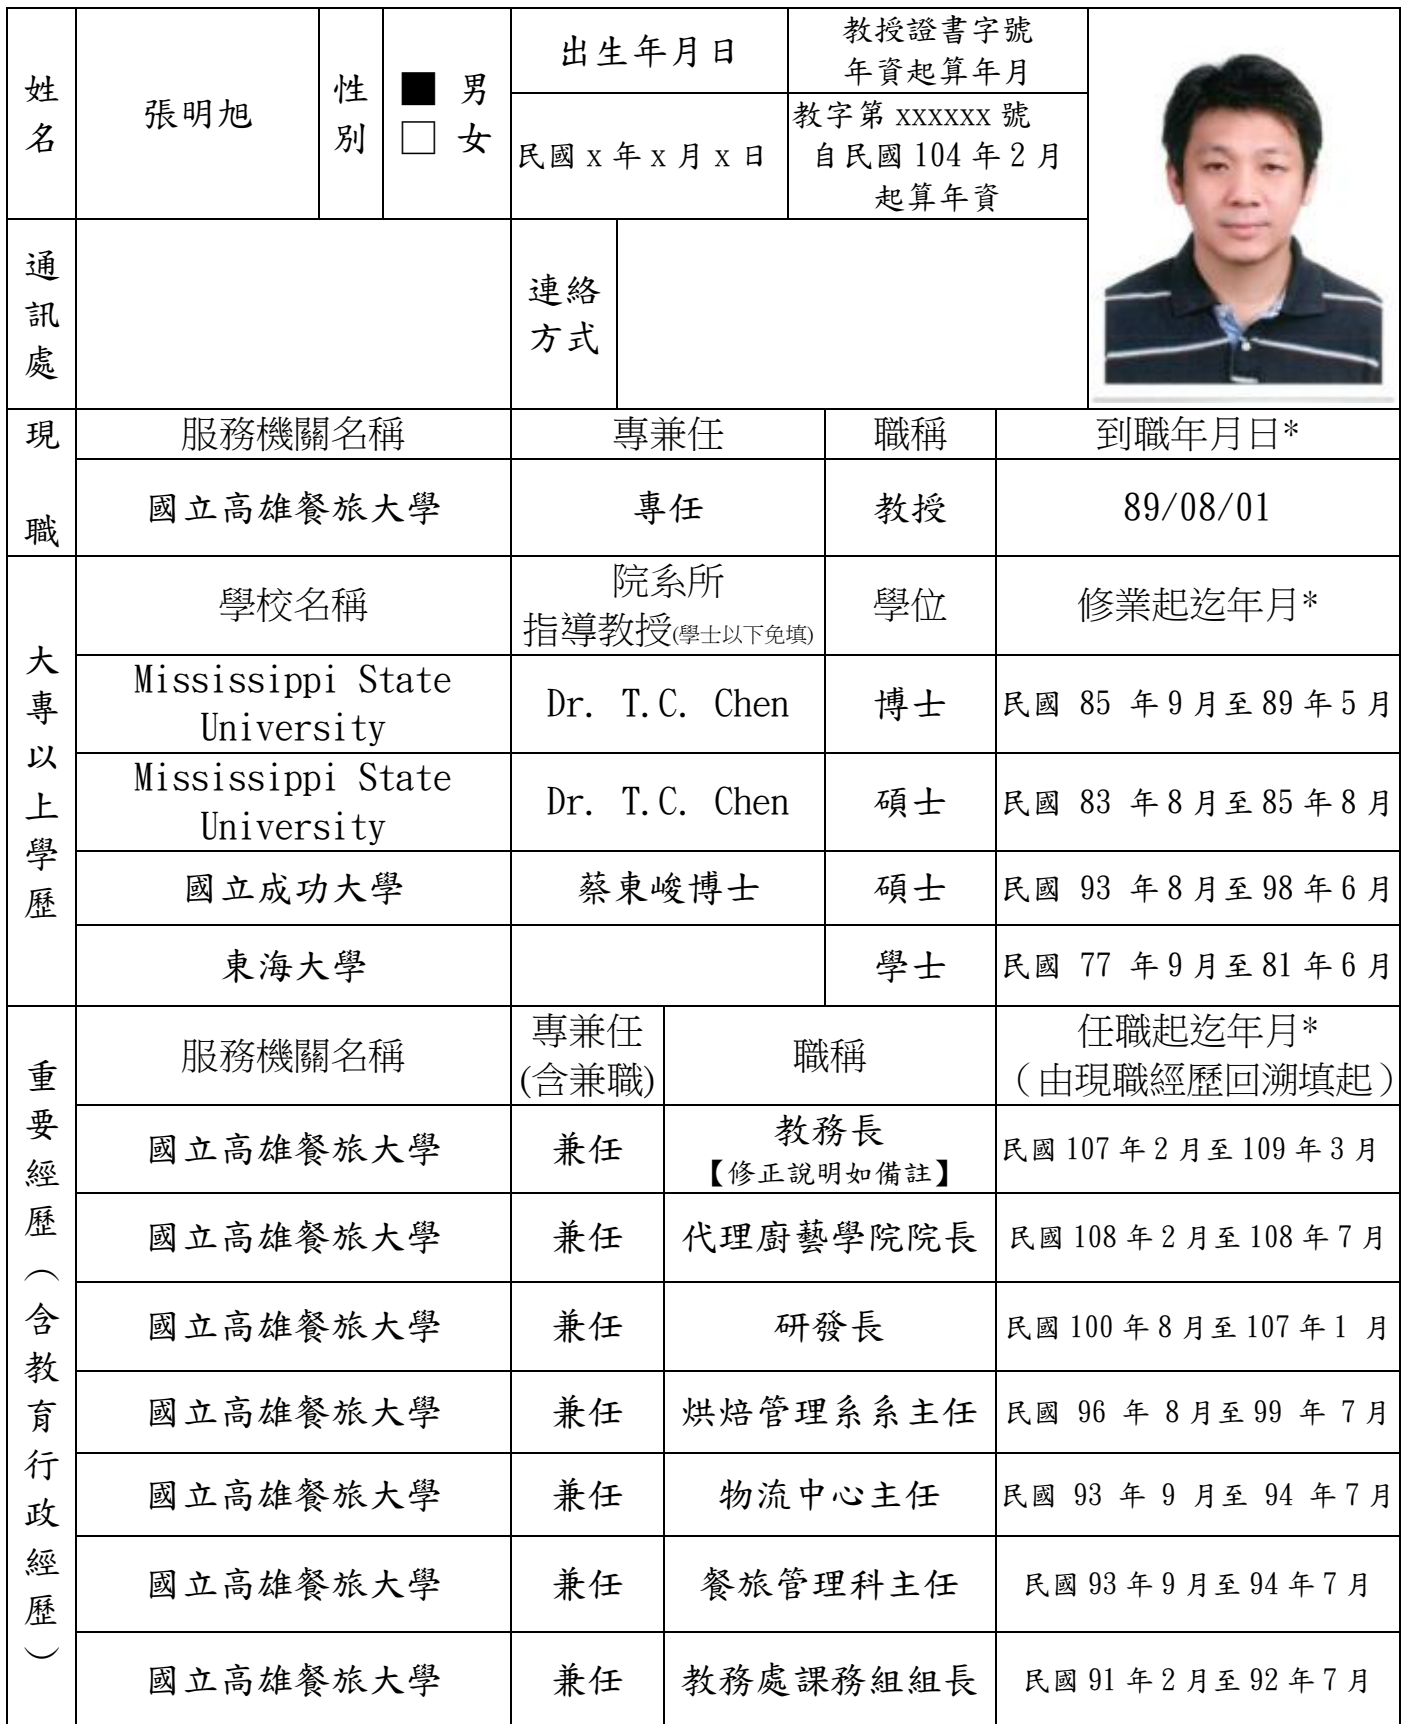 姓名
張明旭
性別
■ 男
□ 女
出生年月日
教授證書字號
年資起算年月
民國 x 年 x 月 x 日
教字第 xxxxxx 號
自民國 104 年 2 月
起算年資
通訊處
連絡
方式
現職
服務機關名稱 專兼任 職稱 到職年月日*
國立高雄餐旅大學 專任 教授 89/08/01
大專以上學歷
學校名稱
院系所
指導教授(學士以下免填)
學位
修業起迄年月*
Mississippi State
University
Dr. T.C. Chen
博士
民國 85 年 9 月至 89 年 5 月
Mississippi State
University
Dr. T.C. Chen
碩士
民國 83 年 8 月至 85 年 8 月
國立成功大學 蔡東峻博士 碩士 民國 93 年 8 月至 98 年 6 月
東海大學 學士 民國 77 年 9 月至 81 年 6 月
重要經歷（含教育行政經歷）
服務機關名稱
專兼任
(含兼職)
職稱
任職起迄年月*
（由現職經歷回溯填起）
國立高雄餐旅大學
兼任
教務長
【修正說明如備註】
民國 107 年 2 月至 109 年 3 月
國立高雄餐旅大學 兼任 代理廚藝學院院長 民國 108 年 2 月至 108 年 7 月
國立高雄餐旅大學 兼任 研發長 民國 100 年 8 月至 107 年 1 月
國立高雄餐旅大學 兼任 烘焙管理系系主任 民國 96 年 8 月至 99 年 7 月
國立高雄餐旅大學 兼任 物流中心主任 民國 93 年 9 月至 94 年 7 月
國立高雄餐旅大學 兼任 餐旅管理科主任 民國 93 年 9 月至 94 年 7 月
國立高雄餐旅大學 兼任 教務處課務組組長 民國 91 年 2 月至 92 年 7 月